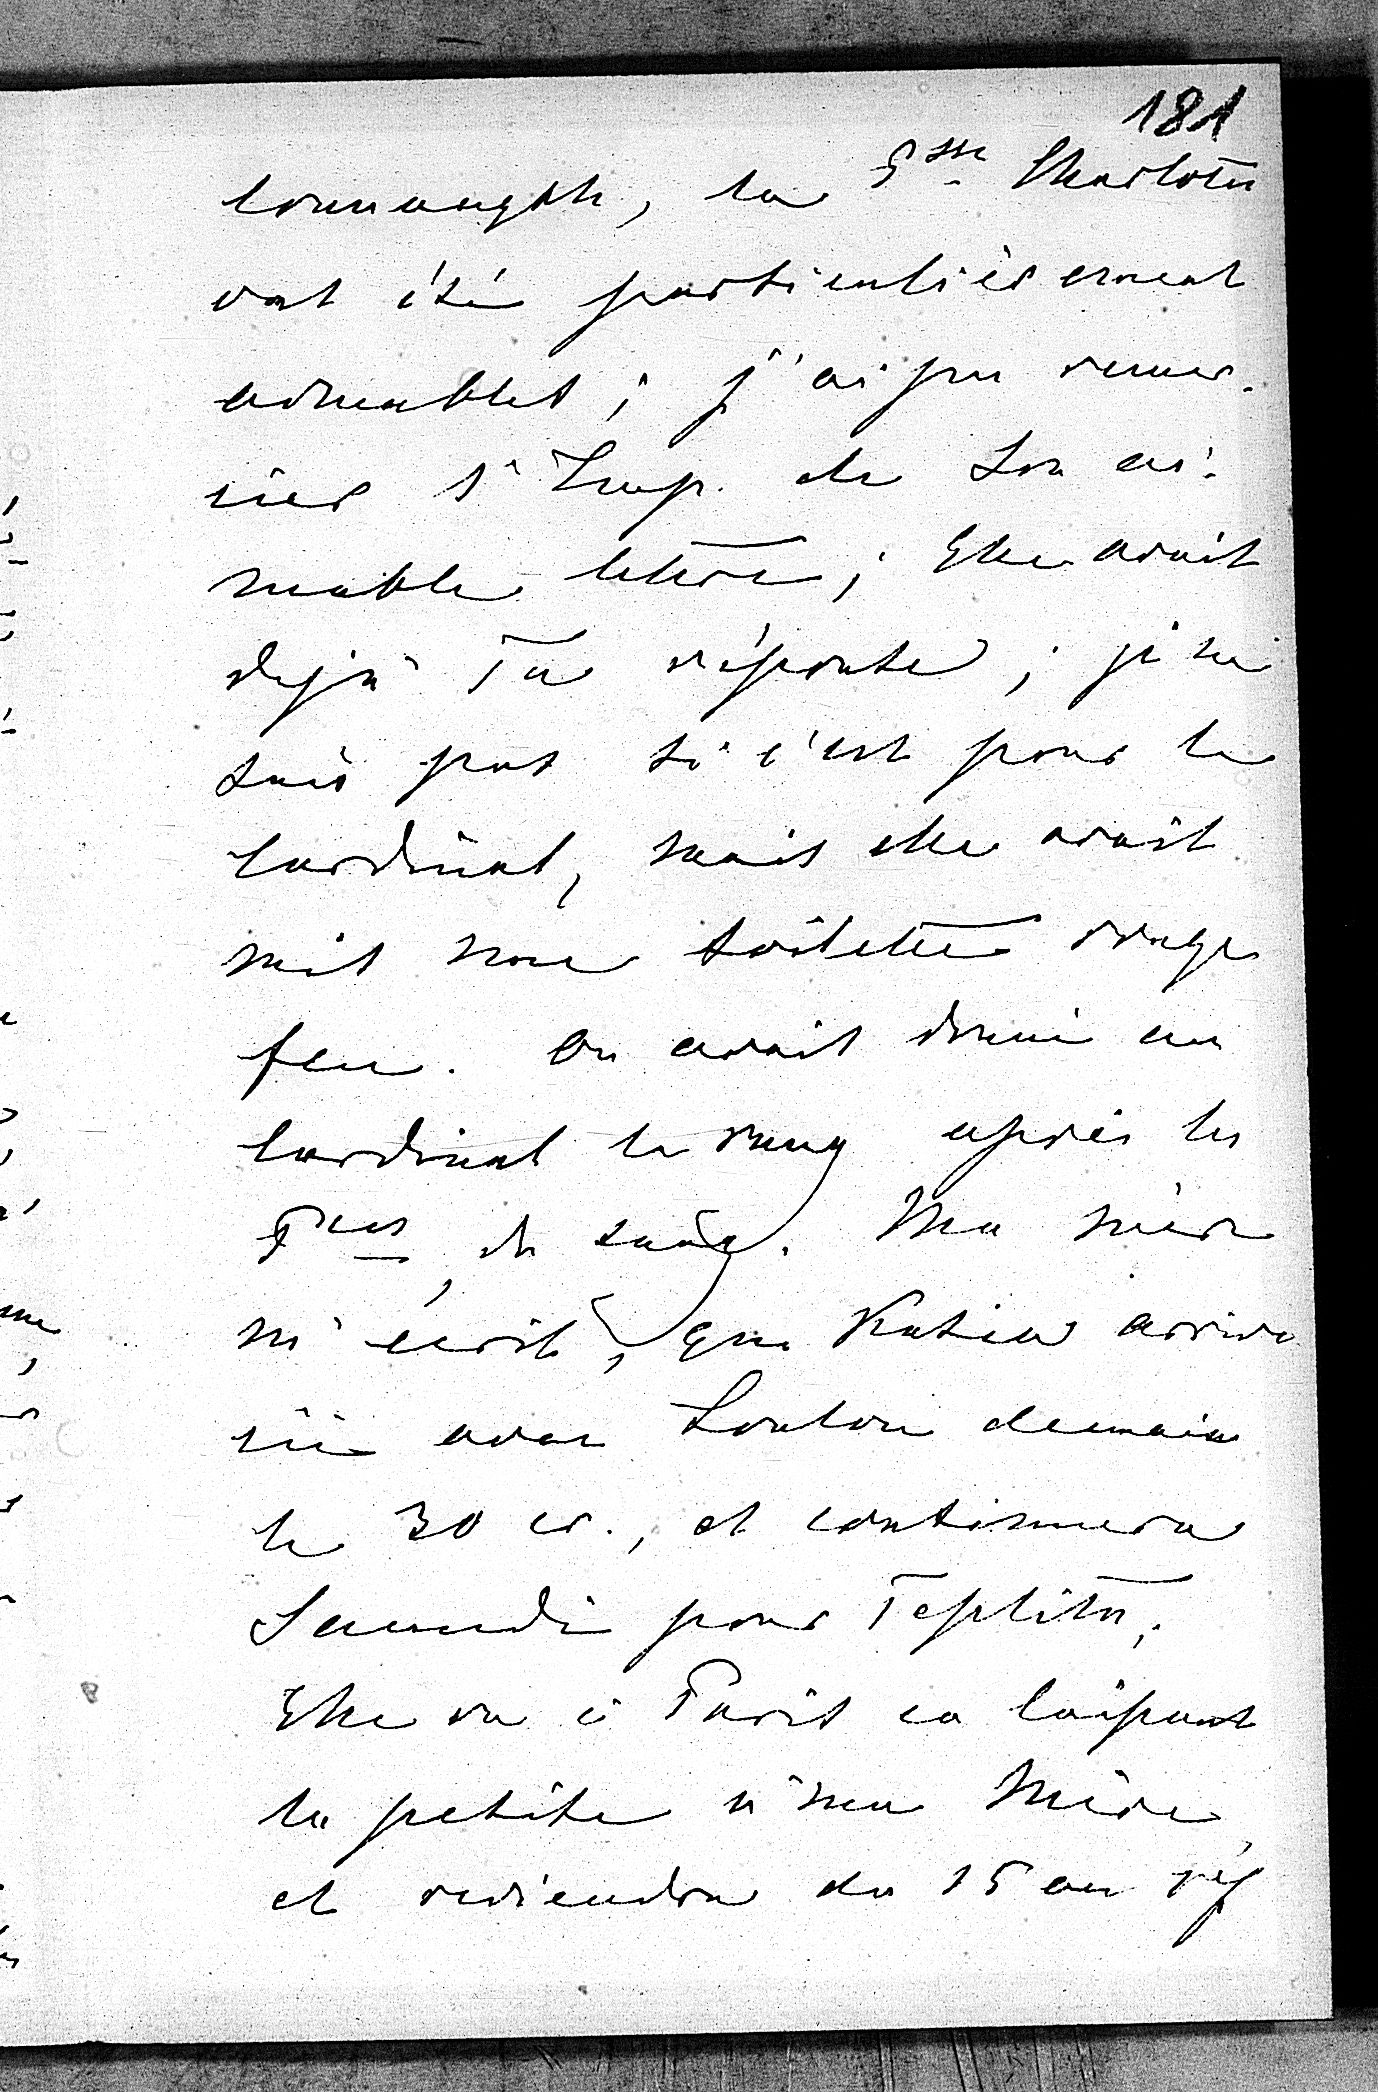 181
Connaught, la Psse Charlotte
ont été particulièrement
aimables ; j'ai pu remer-
cier l'Imp. de Son ai-
mable lettre ; Elle avait
dejà Ta réponse ; je ne
sais pas si c'est pour le
Cardinal, mais elle avait
mis une toilette rouge
feu. On avait donné au
Cardinal le rang après les
Pces du sang. Ma mère
m'écrit, que Katia arrive
ici avec Loulou demain
le 30 cr., et continuera
Samedi pour Teplitz,
Elle va à Paris en laissant
la petite à ma Mère,
et reviendra du 15 au